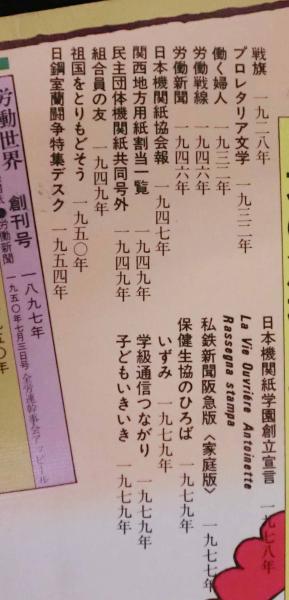 戦旗 一九二八年
プロレタリア文学 一九三二年
働く婦人 一九三二年
労働戦線 一九四六年
労働新聞 一九四六年
日本機関紙協会報 一九四七年
関西地方用紙割当一覧 一九四九年
民主団体機関紙共同号外 一九四九年
組合員の友 一九四九年
祖国をとりもどそう 一九五〇年
日鋼室蘭闘争特集デスク 一九五四年
日本機関紙学園創立宣言 一九七八年
La Vie Ouvriére Antoinette
Rassegna stampa
私鉄新聞阪急版〈家庭版〉 一九七七年
保健生協のひろば 一九七九年
いずみ 一九七九年
学級通信つながり 一九七九年
子どもいきいき 一九七九年
労働世界 創刊号 一八九七年
●労働新聞 一九五〇年七月三日号 全労連幹事会アッピール
五〇年